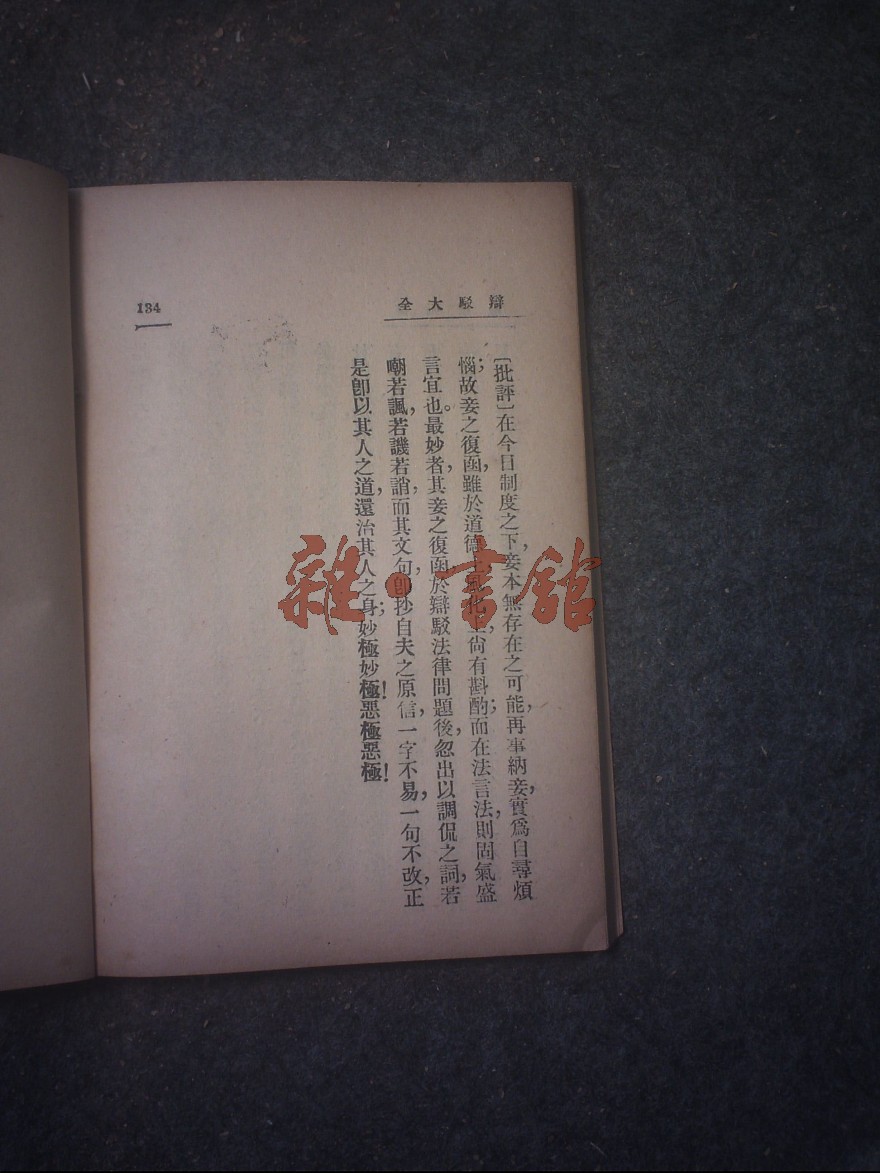 辯駁大全
134
〔批評〕在今日制度之下，妾本無存在之可能，再事納妾，實爲自尋煩
惱；故妾之復函，雖於道德上，風化上，尚有斟酌；而在法言法，則固氣盛
言宜也。最妙者，其妾之復函，於辯駁法律問題後，忽出以調侃之詞，若
嘲若諷，若譏若誚，而其文句，卽抄自夫之原信，一字不易，一句不改，正
是卽以其人之道，還治其人之身；妙極妙極！惡極惡極！
雜·書館